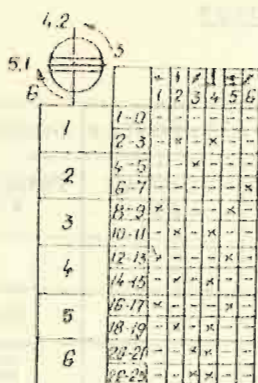 4.2
5
5.1
6
1 2 3 4 5 6
1 1-0 - - - - - -
2-3 - × - × - -
2 4-5 - - × - - -
6-7 - - - - - ×
3 8-9 × - - - × -
10-11 - × - × - -
4 12-13 × - - - × -
14-15 - × - × - -
5 16-17 × - - - × -
18-19 - × - × - -
6 20-21 - - × × - -
22-23 - - × × - -